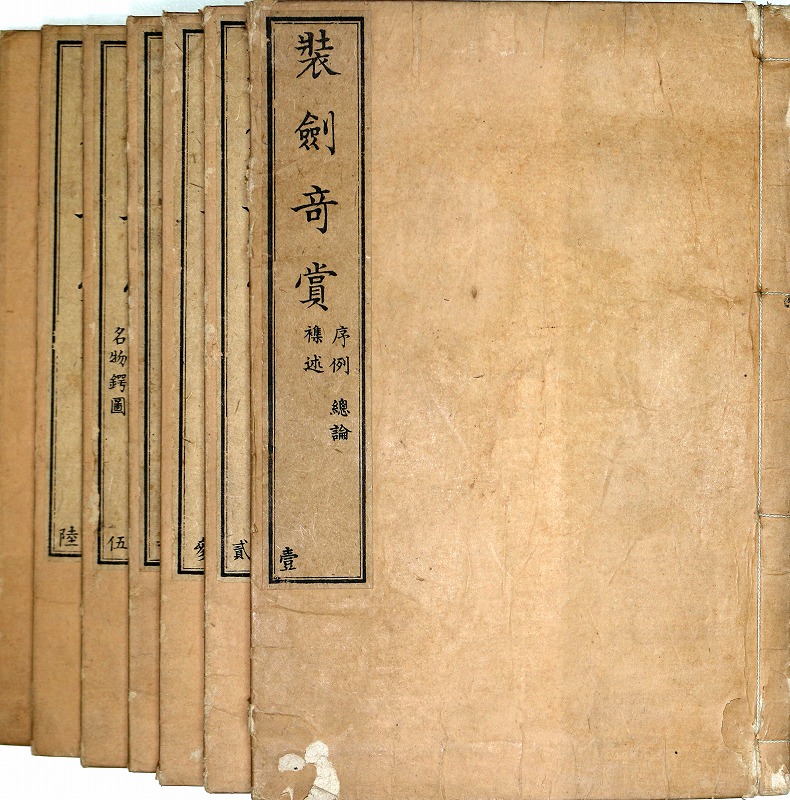 裝劍竒賞
序例 總論
襍述
壹
貳
名物鍔圖
伍
陸